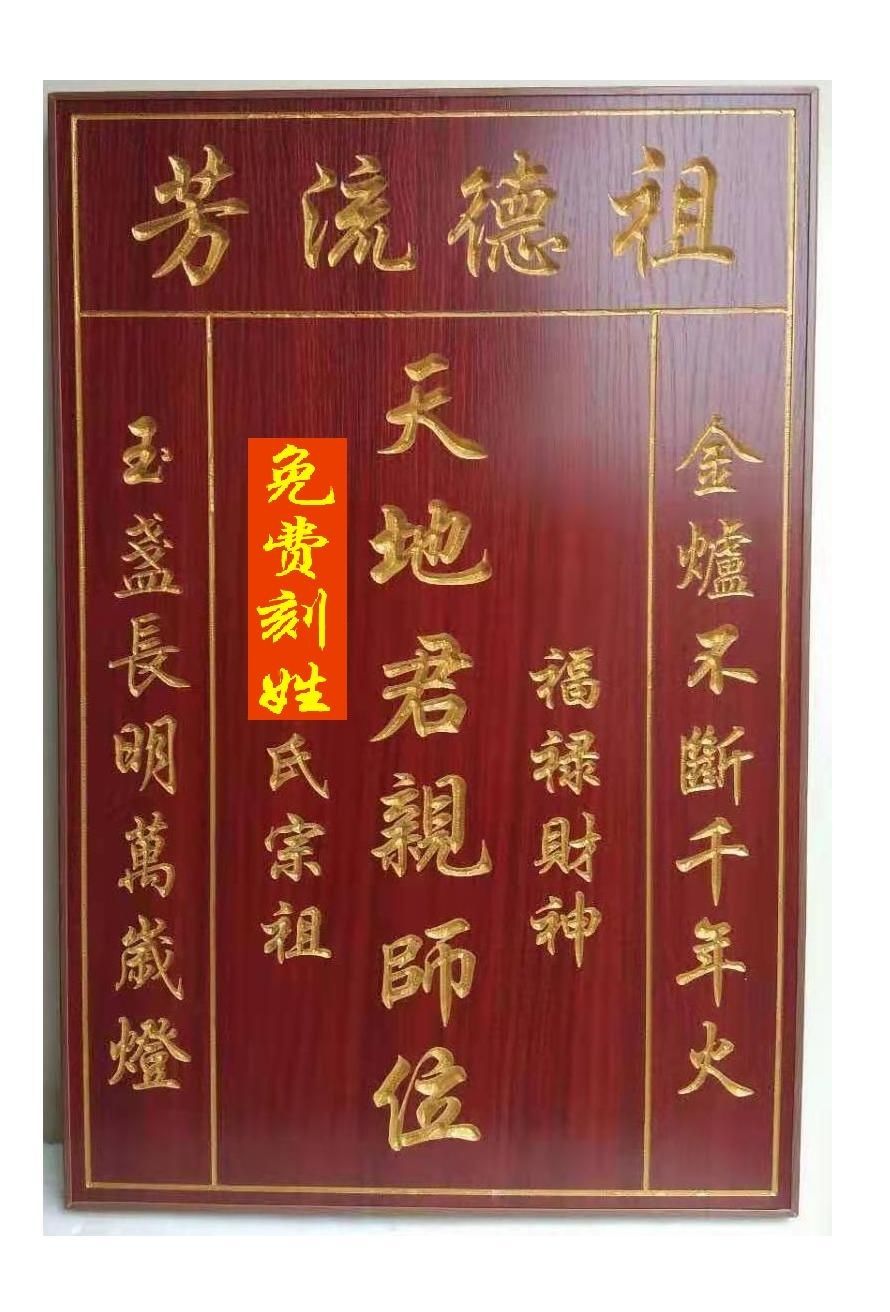 祖德流芳
金爐不斷千年火
福禄財神
天地君親師位
免费刻姓
氏宗祖
玉盞長明萬歲燈